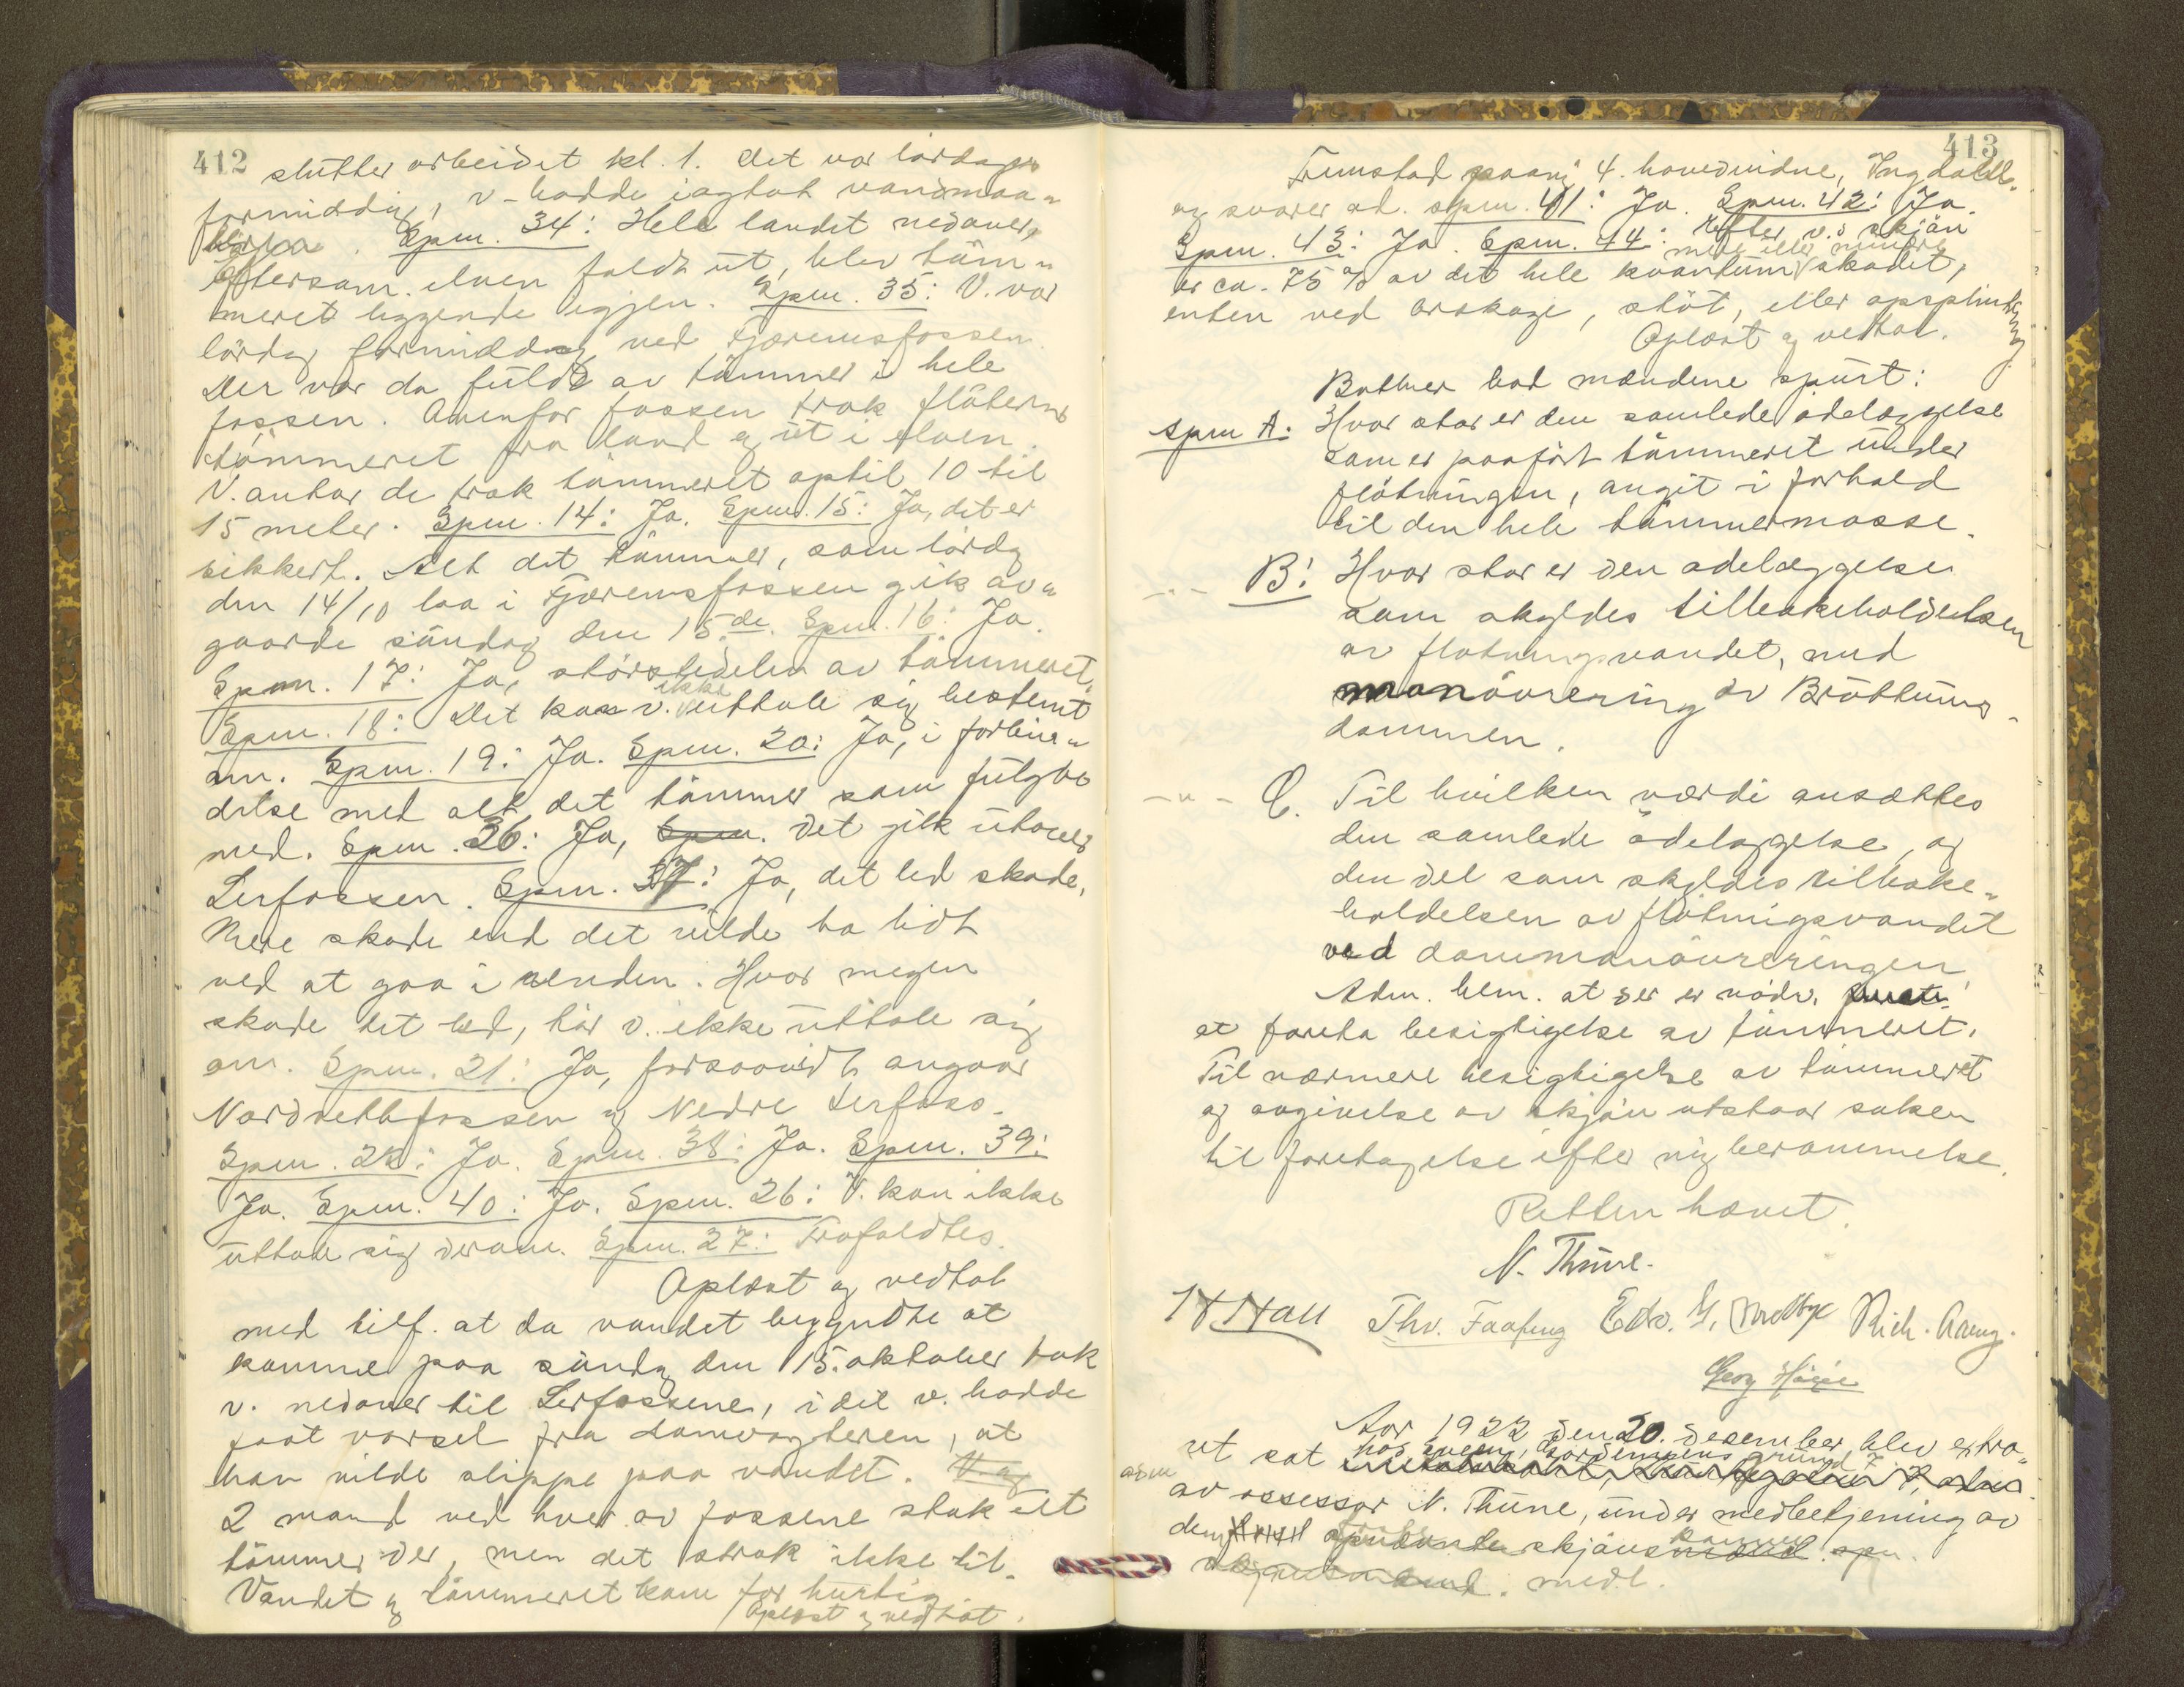 412
slutter arbeidet kl. 1. Det var lördags
formiddag, v. hadde iagtat vandmaa-
lerne. Spm. 34: Hele landet nedover,
Eftersom elven faldt ut, blev töm-
meret liggende igjen. Spm. 35: V. var
lördag formiddag ved Fjæremsfossen.
Der var da fuldt av tömmer i hele
fossen. Ovenfor fossen trak flöterne
tömmeret fra land og ut i elven.
V. antar de trak tömmeret optil 10 til
15 meter. Spm. 14: Ja. Spm. 15: Ja, det er
sikkert. Alt det tömmer, som lördag
den 14/10 laa i Fjæremsfossen gik av-
gaarde söndag den 15de. Spm. 16: Ja.
Spm. 17: Ja, störstedelen av tömmeret.
Spm. 18: Det kan v. ikke uttale sig bestemt
om. Spm. 19: Ja. Spm. 20: Ja, i forbin-
delse med alt det tömmer som fulgte
med. Spm. 36: Ja, Spm. det gik utover
Lerfossen. Spm. 37: Ja, det led skade,
Mere skade end det vilde ha lidt
ved at gaa i renden. Hvor megen
skade det led, tör v. ikke uttale sig
om. Spm. 21: Ja, forsaavidt angaar
Nordsetfossen og Nedre Lerfoss.
Spm. 22: Ja. Spm. 38: Ja. Spm. 39:
Ja. Spm. 40: Ja. Spm. 26: V. kan ikke
uttale sig derom. Spm. 27: Frafaldtes.
Oplæst og vedtat
med tilf. at da vandet begyndte at
komme paa söndag den 15. oktober tok
v. nedover til Lerfossene, i det v. hadde
faat varsel fra damvogteren, at
han vilde slippe paa vandet. V. og
2 mand ved hver av fossene stak ut
tömmer der, men det strak ikke til.
Vandet og tömmeret kom for hurtig.
Oplæst og vedtat.
413
Trunstad paany 4. hovedvidne, Ingdahl.
og svarer ad. spm. 41: Ja. Spm. 42: Ja.
Spm. 43: Ja. Spm. 44: Efter v.s skjön
er ca. 75 % av det hele kvantum mere eller mindre skadet,
enten ved brækage, stöt, eller opsplintring
Oplæst og vedtat.
Bothner bad mændene spurt:
Spm A: Hvor stor er den samlede ödelæggelse
som er paafört tömmeret under
flötningen, angit i forhold
til den hele tömmermasse.
-"- B: Hvor stor er den ödelæggelse
som skyldes tilbakeholdelsen
av flötningsvandet, med
manövrering av Bröttums-
dammen.
-"- C. Til hvilken værdi ansættes
den samlede ödelæggelse, og
den del som skyldes tilbake-
holdelsen av flötningsvandet
ved dammanövreringen.
Adm. bem. at der er nödv.
at foreta besigtigelse av tömmeret.
Til nærmere besigtigelse av tömmeret
og avgivelse av skjön utstaar saken
til foretagelse efter ny berammelse.
Retten hævet.
N. Thüne.
Thv. Faafeng Edv. G. Melbye Rich. Aaeng.
Georg Höyer
Aar 1922 den 20. desember blev extra-
ret sat
av assessor N. Thüne, under medbetjening av
skjöns
medl.